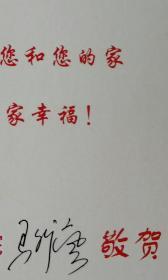 您和您的家
家幸福！
敬贺